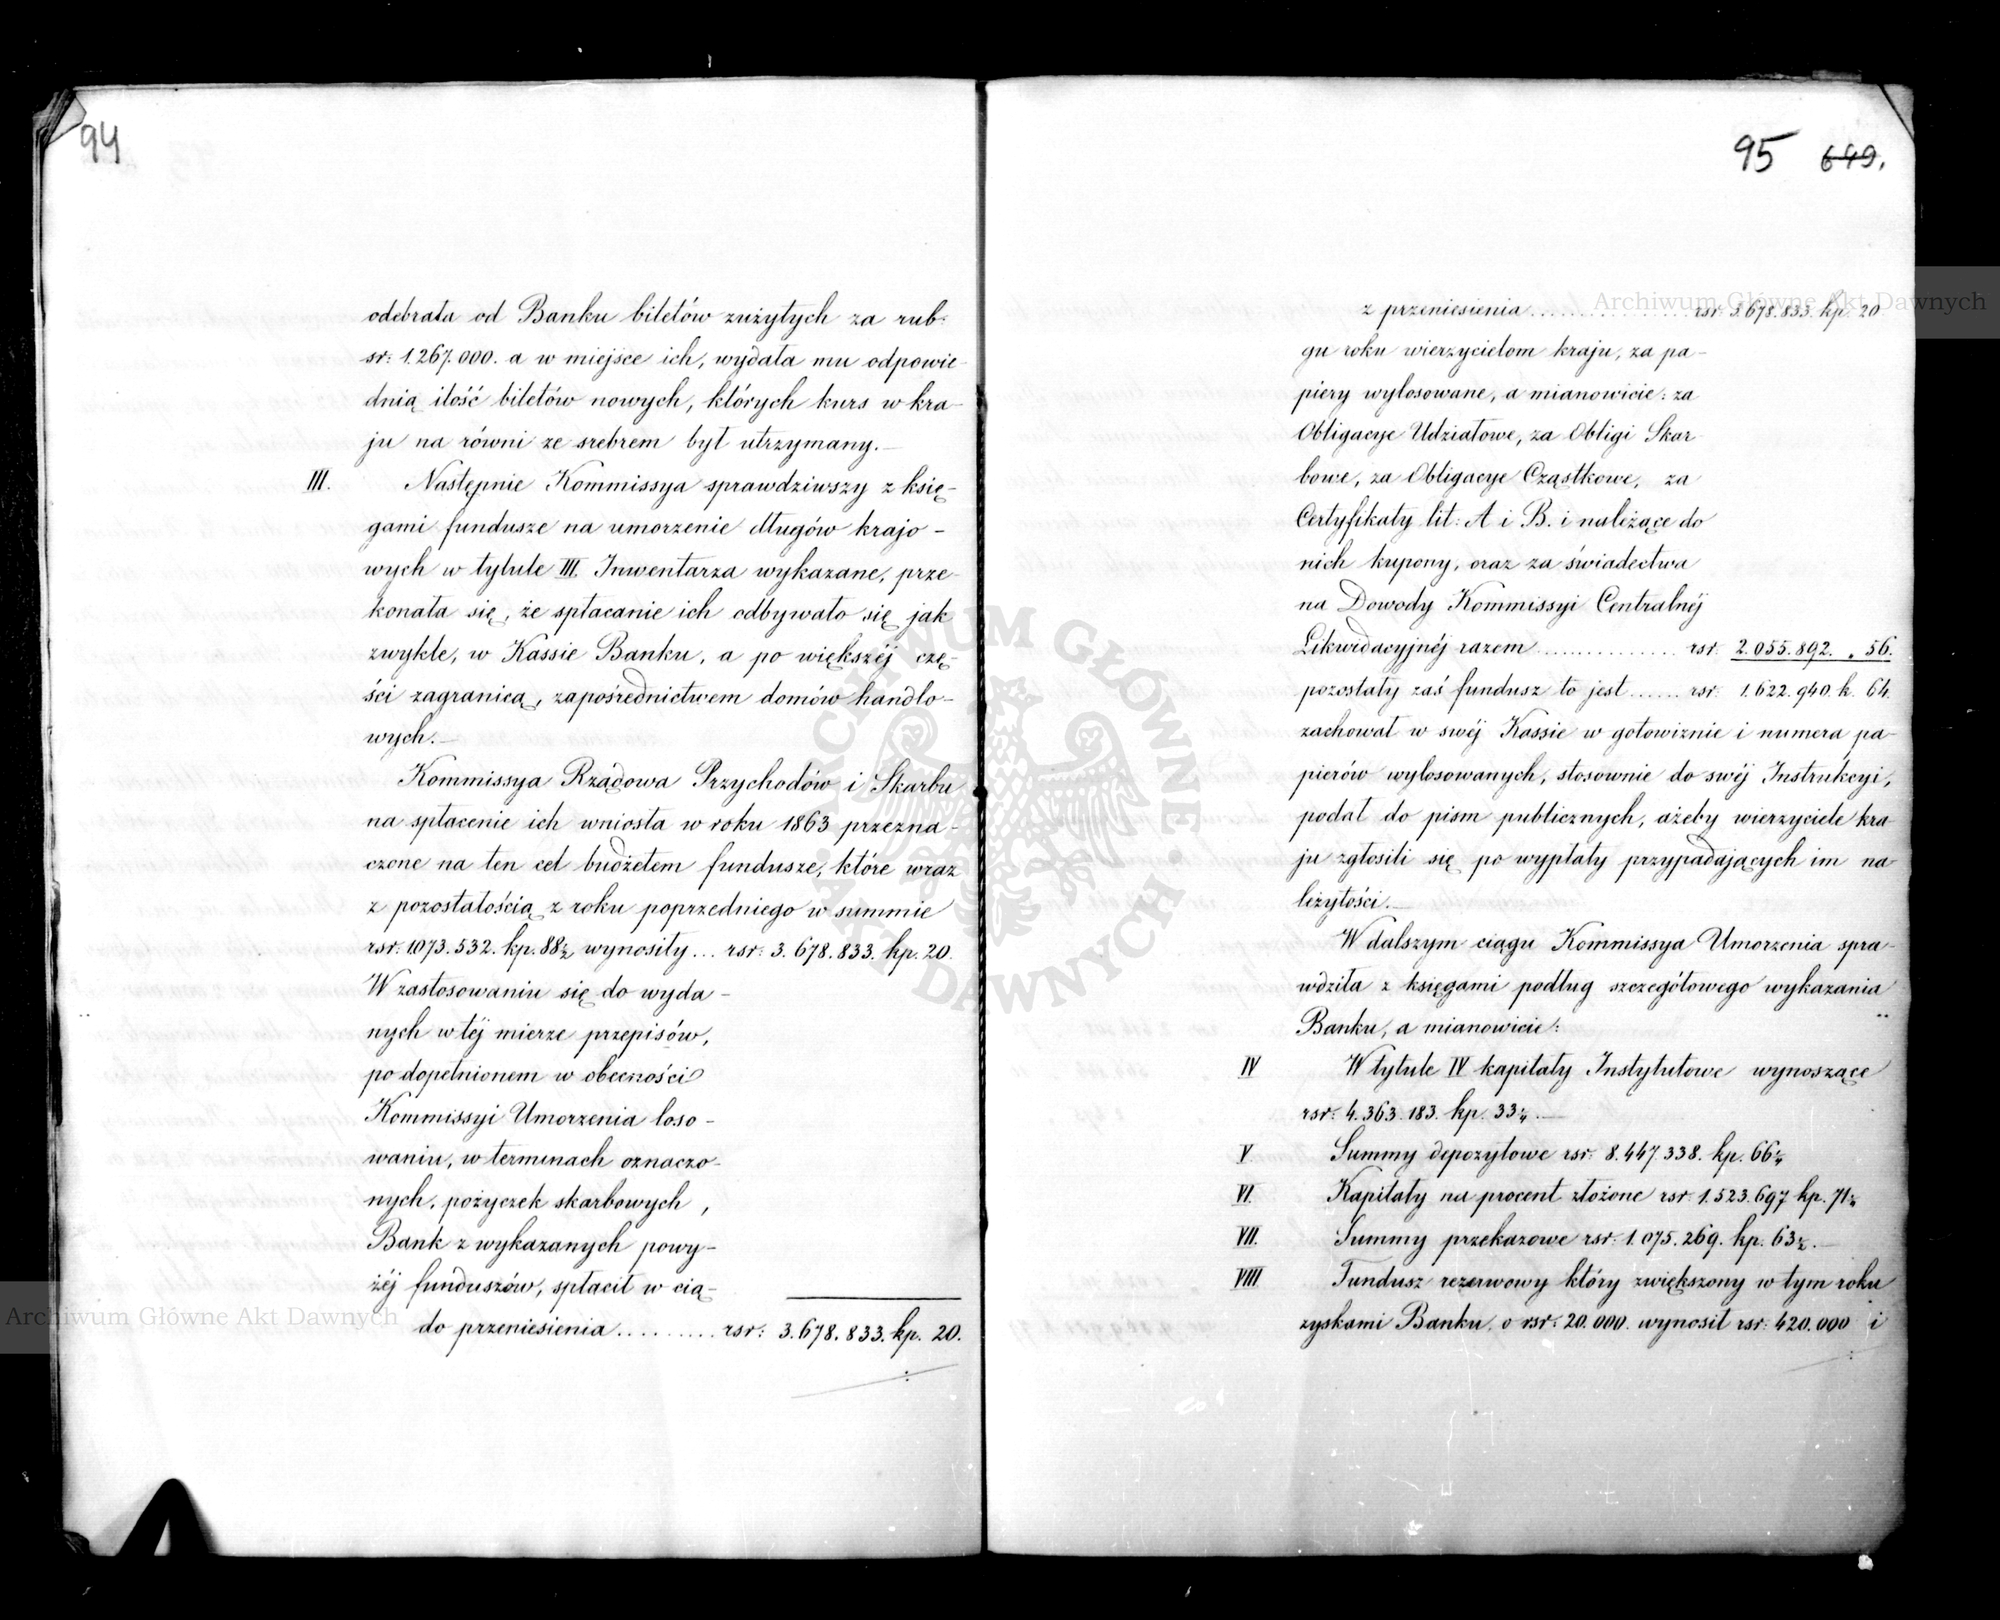 94
odebrała od Banku biletów zużytych za rub:
sr: 1.267.000. a w miejsce ich, wydała mu odpowie-
dnią ilość biletów nowych, których kurs w kra-
ju na równi ze srebrem był utrzymany.—
III. Następnie Kommissya sprawdziwszy z księ-
gami fundusze na umorzenie długów krajo-
wych w tytule III. Inwentarza wykazane, prze-
konała się, że spłacanie ich odbywało się jak
zwykle, w Kassie Banku, a po większéj czę-
ści zagranicą, zapośrednictwem domów handlo-
wych.—
Kommissya Rządowa Przychodów i Skarbu
na spłacenie ich wniosła w roku 1863 przezna-
czone na ten cel budżetem fundusze, które wraz
z pozostałością z roku poprzedniego w summie
rsr: 1073.532. kp. 88½ wynosiły... rsr: 3.678.833. kp. 20.
W zastosowaniu się do wyda-
nych w téj mierze przepisów,
po dopełnionem w obecności
Kommissyi Umorzenia loso-
waniu, w terminach oznaczo-
nych, pożyczek skarbowych,
Bank z wykazanych powy-
żéj funduszów, spłacił w cią-
do przeniesienia.......... rsr: 3.678.833. kp. 20.
95 649.
z przeniesienia................ rsr 3.678.833. kp. 20
gu roku wierzycielom kraju, za pa-
piery wylosowane, a mianowicie: za
Obligacye Udziałowe, za Obligi Skar-
bowe, za Obligacye Cząstkowe, za
Certyfikaty lit: A i B. i należące do
nich kupony, oraz za świadectwa
na Dowody Kommissyi Centralnéj
Likwidacyjnéj razem .............. rsr. 2.055.892. „ 56.
pozostały zaś fundusz to jest...... rsr: 1.622.940. k. 64.
zachował w swéj Kassie w gotowiznie i numera pa-
pierów wylosowanych, stosownie do swéj Instrukcyi,
podał do pism publicznych, ażeby wierzyciele kra-
ju zgłosili się po wypłaty przypadających im na-
leżytości.—
W dalszym ciągu Kommissya Umorzenia spra-
wdziła z księgami podług szczegółowego wykazania
Banku, a mianowicie:
IV W tytule IV kapitały Instytutowe wynoszące
rsr: 4.363.183. kp. 33¼.—
V Summy depozytowe rsr: 8.447.338. kp. 66¼
VI. Kapitały na procent złożone rsr: 1.523.697 kp. 71½
VII. Summy przekazowe rsr: 1.075.269. kp. 63½.—
VIII Fundusz rezerwowy który zwiększony w tym roku
zyskami Banku o rsr: 20.000. wynosił rsr: 420.000 i
Archiwum Główne Akt Dawnych
Archiwum Główne Akt Dawnych
ARCHIWUM GŁÓWNE AKT DAWNYCH